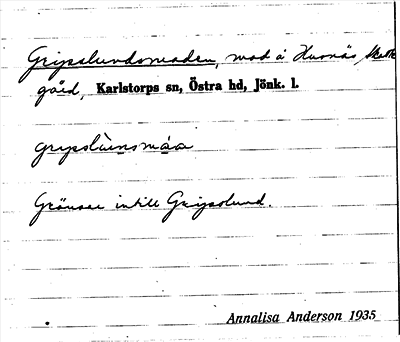 Gripslundsmaden, mad å Husnäs skatte
gård, Karlstorps sn, Östra hd, Jönk. l.
gripslùnsmáa
Gränsar intill Gripslund.
Annalisa Anderson 1935